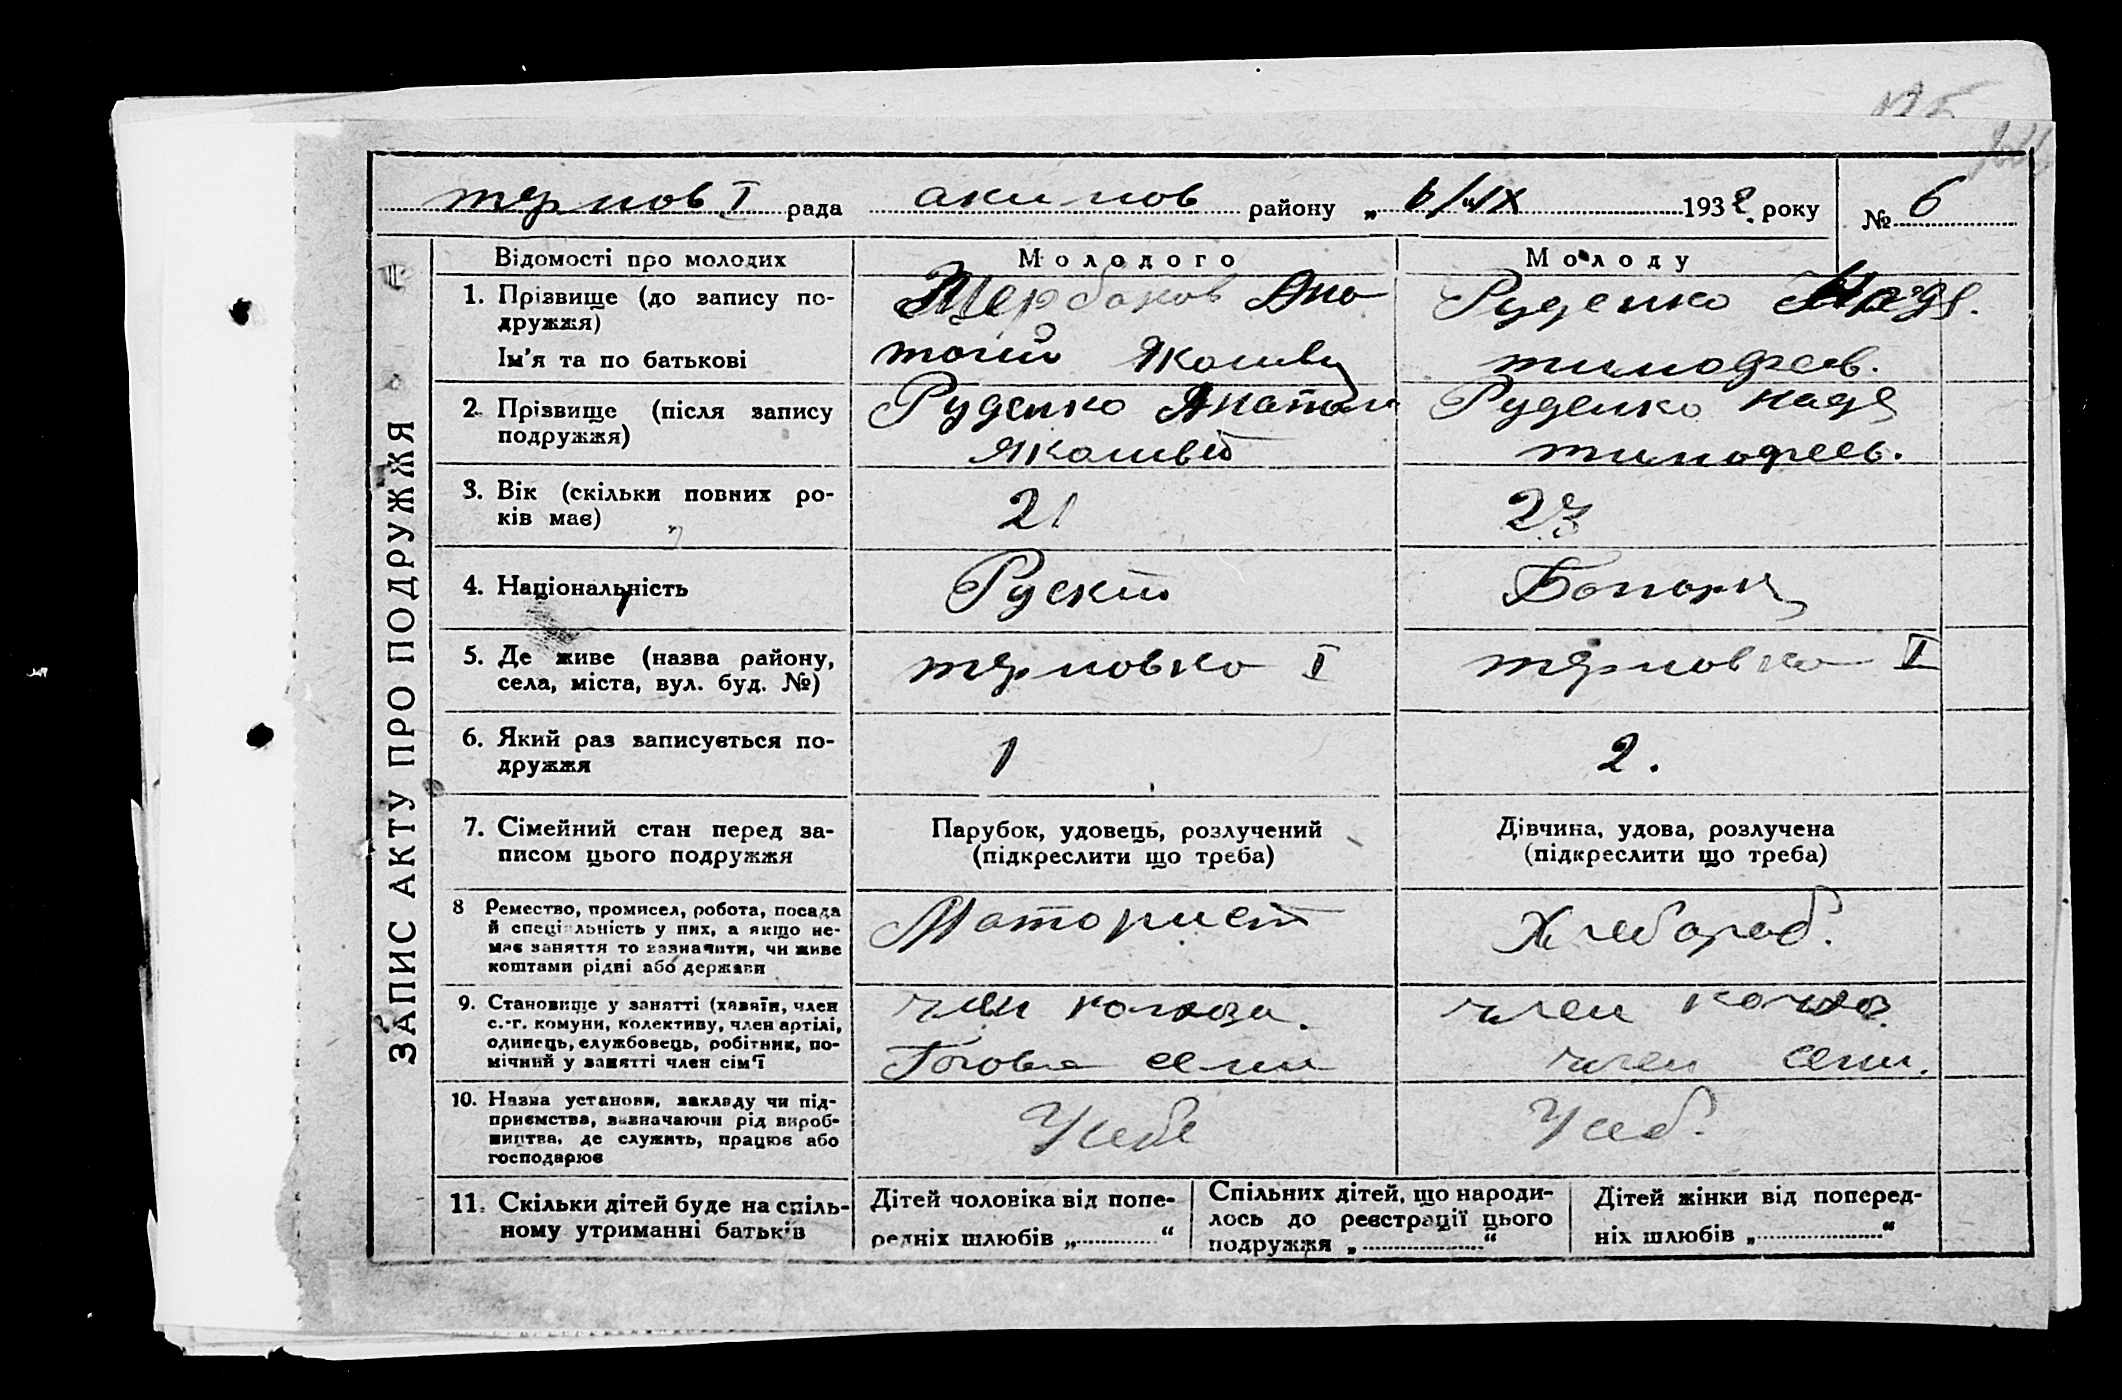 тернов I рада акимов району „ 6/IX 1932 року № 6
ЗАПИС АКТУ ПРО ПОДРУЖЖЯ
Відомості про молодих
Молодого
Молоду
1. Прізвище (до запису по-
дружжя)
Ім'я та по батькові
Щербаков Ана
толий Яколивч
Руденко Надя.
тимофеев.
2. Прізвище (після запису
подружжя)
Руденко Анатоли
Яколивич
Руденко надя
тимофеев.
3. Вік (скільки повних ро-
ків має)
21
23
4. Національність
Руский
5. Де живе (назва району,
села, міста, вул. буд. №)
терновка I
терновка I
6. Який раз записується по-
дружжя
1
2.
7. Сімейний стан перед за-
писом цього подружжя
Парубок, удовець, розлучений
(підкреслити що треба)
Дівчина, удова, розлучена
(підкреслити що треба)
8 Ремество, промисел, робота, посада
й спеціяльність у них, а якщо не-
має заняття то зазначити, чи живе
коштами рідні або держави
Маторист
Хлебароб.
9. Становище у занятті (хазяїн, член
с.-г. комуни, колективу, член артілі,
одинець, службовець, робітник, по-
мічний у занятті член сім'ї
член колхоза.
Голова семи
член колхоз.
член семи.
10. Назва установи, закладу чи під-
приємства, зазначаючи рід вироб-
ництва, де служить, працює або
господарює
Усебе
Усеб.
11. Скільки дітей буде на спіль-
ному утриманні батьків
Дітей чоловіка від попе-
редніх шлюбів „ “
Спільних дітей, що народи-
лось до реєстрації цього
подружжя „ “
Дітей жінки від поперед-
ніх шлюбів „ “